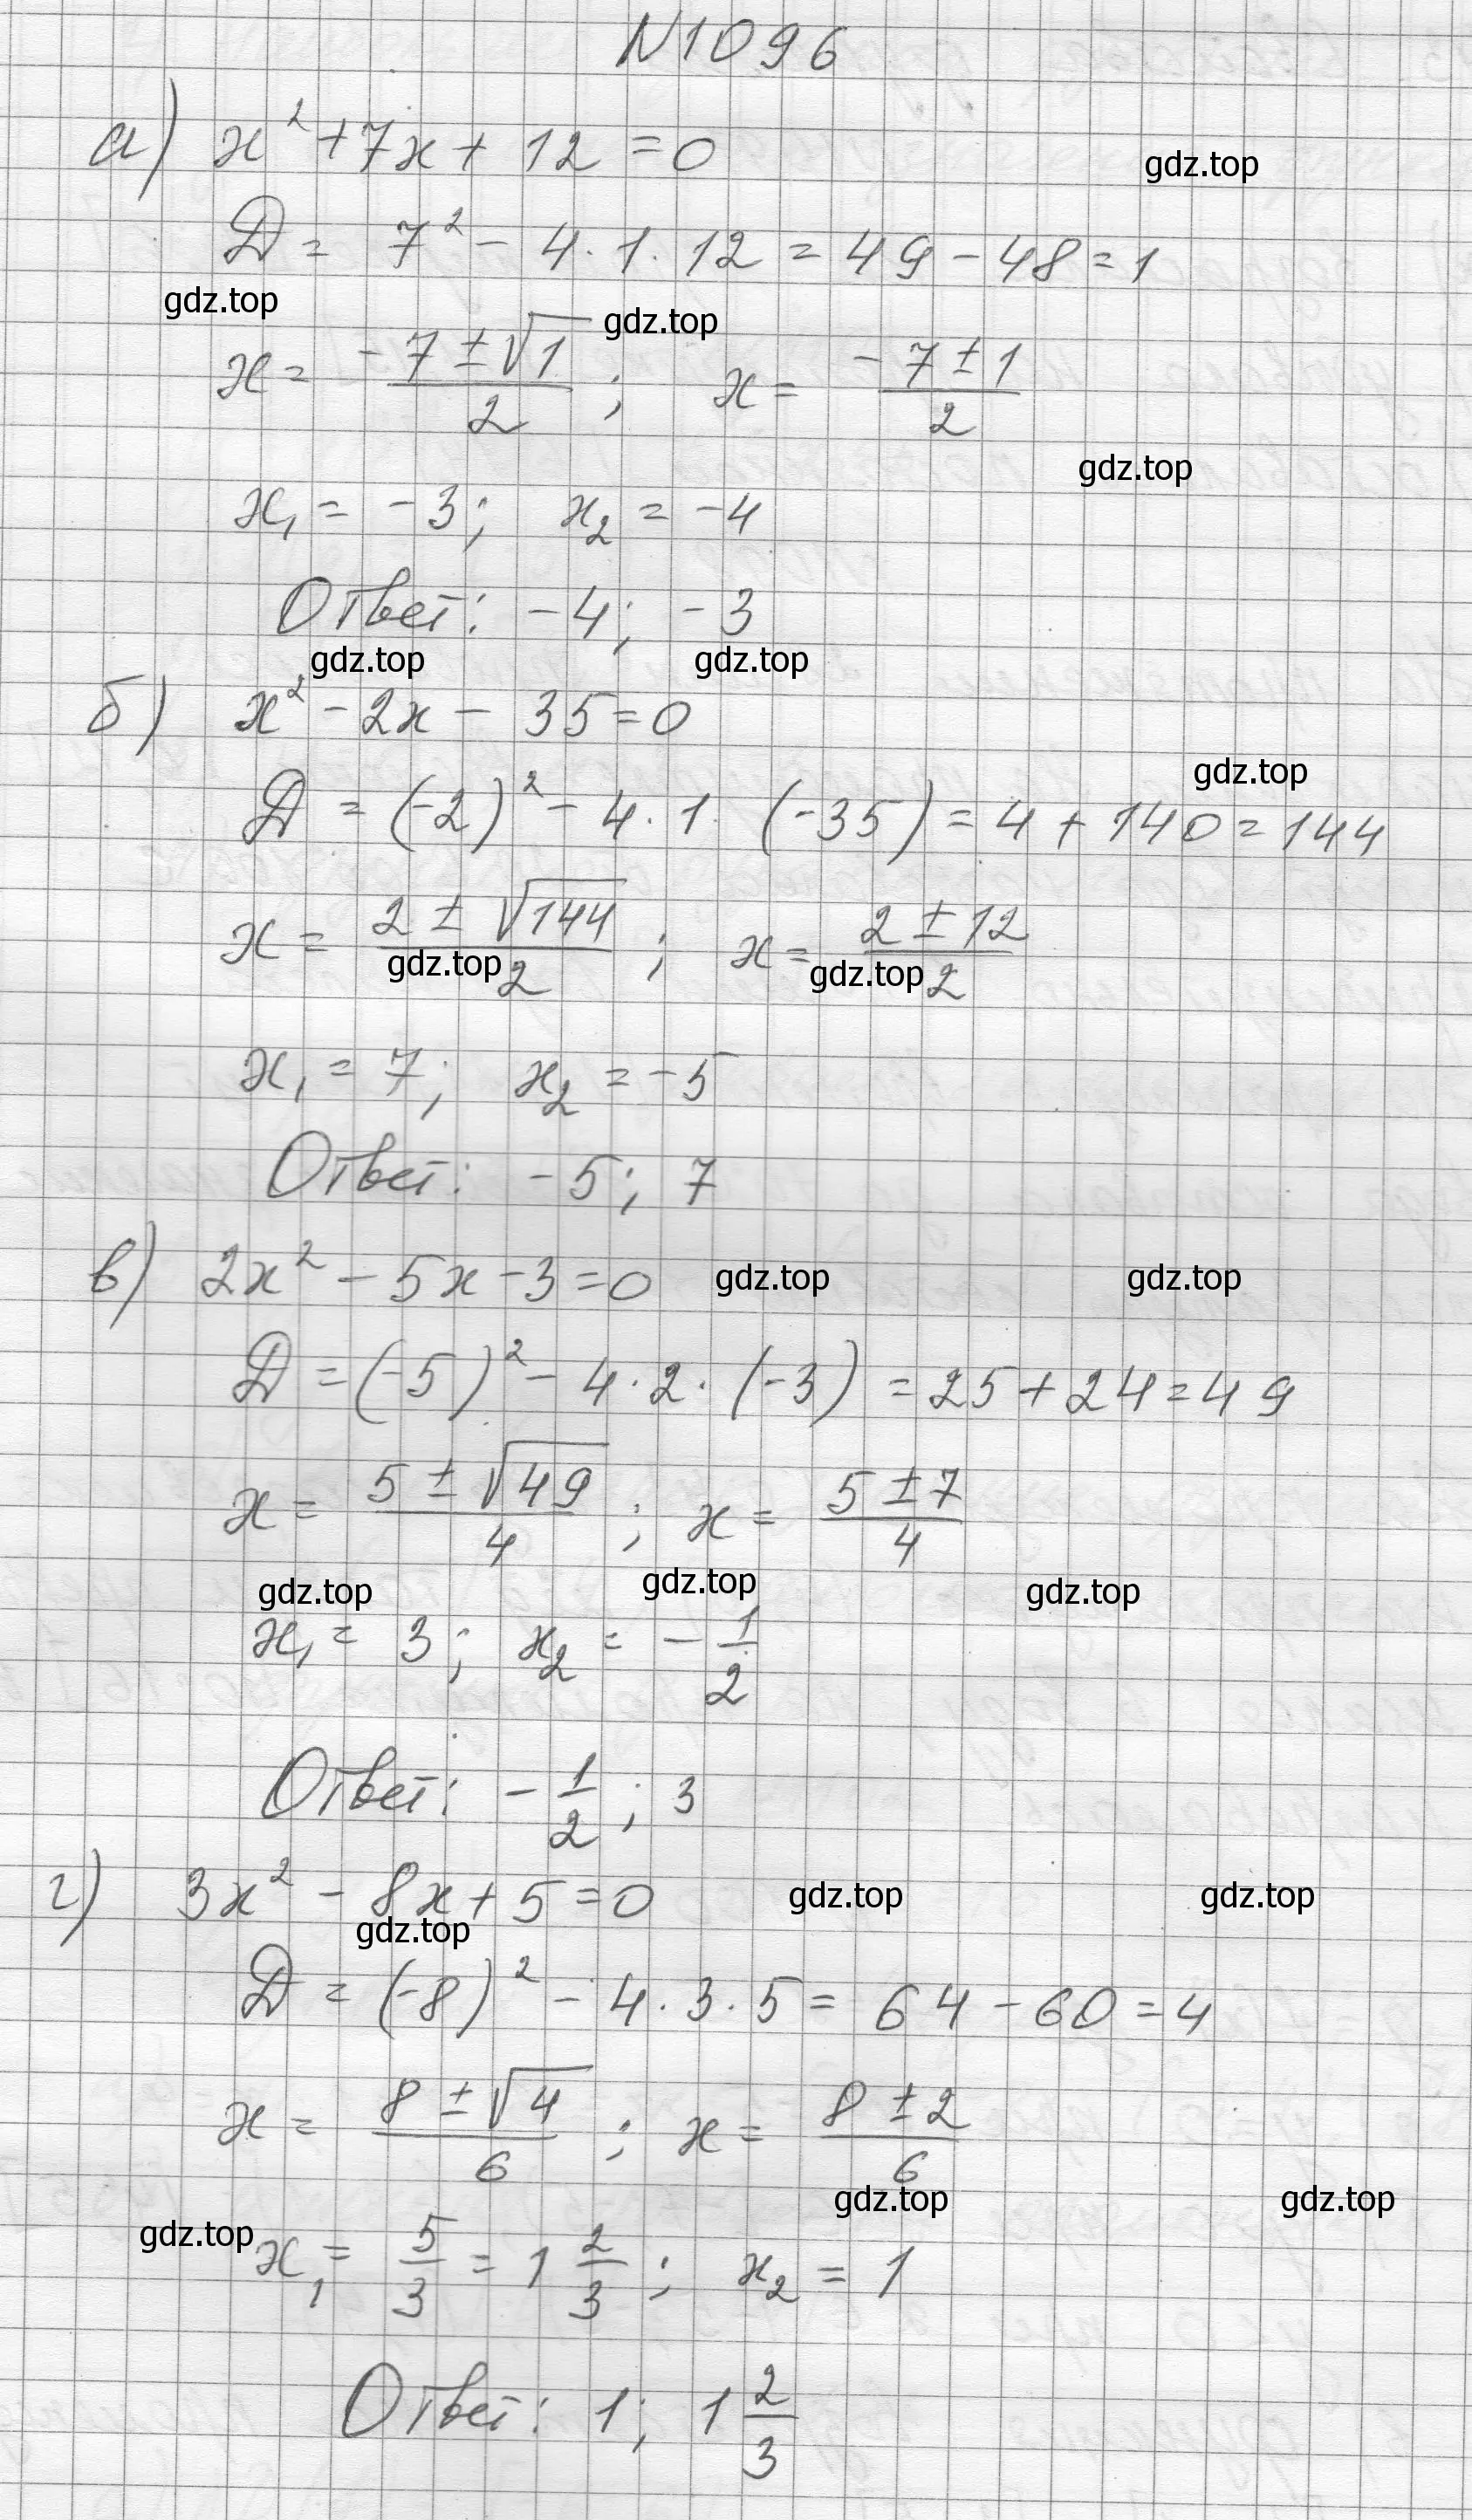 N1096
а) x² + 7x + 12 = 0
gdz.top
D = 7² - 4 · 1 · 12 = 49 - 48 = 1
gdz.top
gdz.top
x = (-7 ± √1)/2 ; x = (-7 ± 1)/2
gdz.top
x₁ = -3; x₂ = -4
Ответ: -4; -3
gdz.top gdz.top
б) x² - 2x - 35 = 0
gdz.top
D = (-2)² - 4 · 1 (-35) = 4 + 140 = 144
x = (2 ± √144)/2 ; x = (2 ± 12)/2
gdz.top gdz.top
x₁ = 7; x₂ = -5
Ответ: -5; 7
в) 2x² - 5x - 3 = 0 gdz.top gdz.top
D = (-5)² - 4 · 2 · (-3) = 25 + 24 = 49
x = (5 ± √49)/4 ; x = (5 ± 7)/4
gdz.top gdz.top gdz.top
x₁ = 3; x₂ = -1/2
Ответ: -1/2 ; 3
г) 3x² - 8x + 5 = 0 gdz.top gdz.top
gdz.top
D = (-8)² - 4 · 3 · 5 = 64 - 60 = 4
x = (8 ± √4)/6 ; x = (8 ± 2)/6
gdz.top gdz.top
gdz.top
x₁ = 5/3 = 1 2/3 ; x₂ = 1
Ответ: 1; 1 2/3